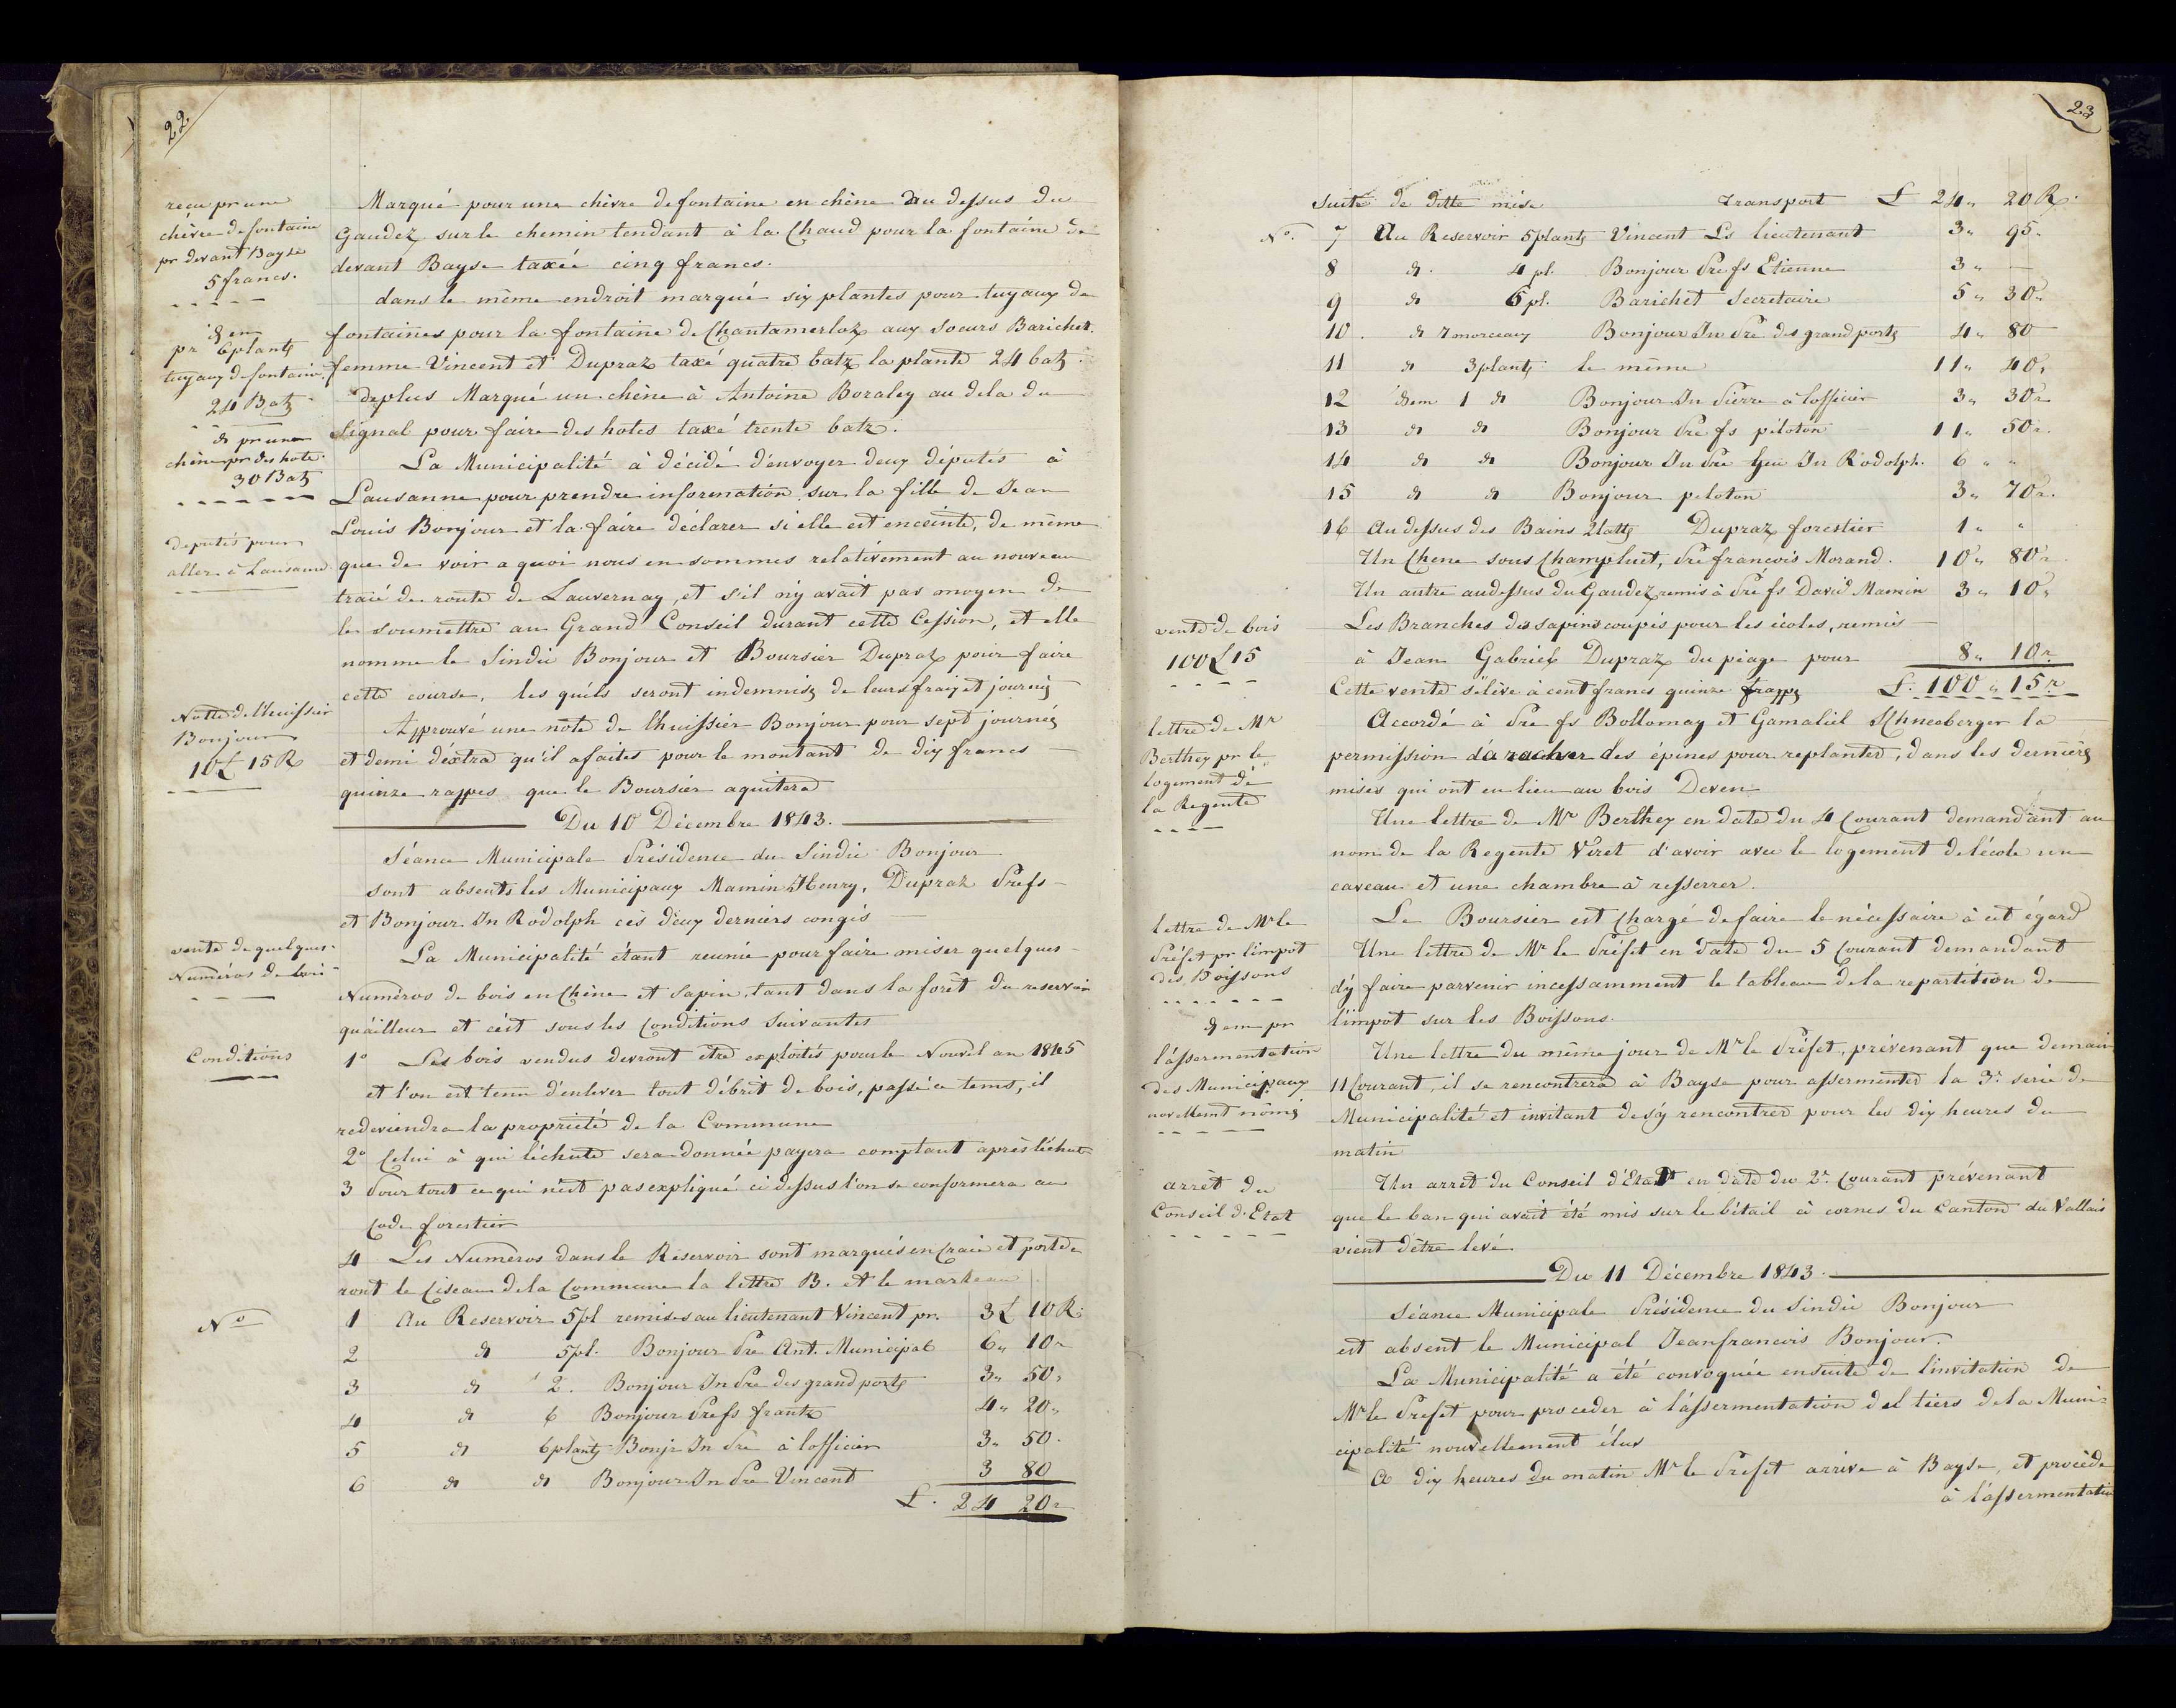 22
reçu pr une
chèvre de fontaine
pr devant Bayse
5 francs.
dem
pr 6 plants
tuyaux de fontaine
24 Batz
d° pr une
chène pr des hote
30 Batz
députés pour
aller à Lausanne
Notte de l'huissier
Bonjour
10 £ 15 R
vente de quelques
Numéros de boi
Conditions
N°
Marqué pour une chèvre de fontaine en chène au dessus du
Gaudez sur le chemin tendant à la Chaud pour la fontaine de
devant Bayse taxée cinq francs.
dans le même endroit marqué six plantes pour tuyaux de
fontaines pour la fontaine de Chantamerloz aux soeurs Barichet.
femme Vincent et Dupraz taxé quatre batz la plante 24 batz.
deplus Marqué un chène à Antoine Boraley au dela du
Signal pour faire des hotes taxé trente batz.
La Municipalité à décidé d'envoyer deux députés à
Lausanne pour prendre information sur la fille de Jean
Louis Bonjour et la faire déclarer si elle est enceinte, de même
que de voir a quoi nous en sommes relativement au nouveau
tracé de route de Lauvernay, et s'il n'y avait pas moyen de
le soumettre au Grand Conseil durant cette Cession, et elle
nomme le Sindic Bonjour et Boursier Dupraz pour faire
cette course, les quels seront indemnisz de leurs fraiz et journés
Approuvé une note de l'huissier Bonjour pour sept journés
et demi d'éxtra qu'il a faites pour le montant de dix francs
quinze rappes que le Boursier aquitera
Du 10 Décembre 1843.
Séance Municipale Présidence du Sindic Bonjour
sont absents les Municipaux Mamin Henry, Dupraz Prefs
et Bonjour Jn Rodolph ces deux derniers congés
La Municipalité étant reunie pour faire miser quelques
Numéros de bois en Chêne et Sapin, tant dans la forêt du reservoir
qu'ailleur et c'est sous les Conditions Suivantes
1° Les bois vendus devront être exploités pour le Nouvel an 1845
et l'on est tenu d'enlever tout débrit de bois, passé ce tems, il
redeviendra la propriété de la Commune
2° Celui à qui l'échute sera donnée payera comptant après l'échute
3 Pour tout ce qui n'est pas expliqué ci dessus l'on se conformera au
Code forestier
4 Les Numéros dans le Réservoir sont marqués en Craie et porte
ront le Ciseau de la Commune la lettre B. et le marteau
1 Au Reservoir 5 pl remises au lieutenant Vincent pr. 3 £ 10 R.
2 d° 5 pl. Bonjour Pre Ant. Municipal 6 " 10 r
3 d° 2. Bonjour Jn Pre des grand ports 3 " 50 r
4 d° 6 Bonjour Prefs frantz 4 " 20 "
5 d° 6 plants Bonjr Jn Pre à l'officier 3 " 50.
6 d° d° Bonjour Jn Pre Vincent 3 80
£. 24 20 r
23
Suite de ditte mise Transport £ 24 " 20 R.
N°. 7 Au Reservoir 5 plants Vincent Ls lieutenant 3 " 95.
8 d°. 4 pl. Bonjour Pre fs Etienne 3 " —
9 d° 6 pl. Barichet Secretaire 5 " 30 "
10. d° 7 morceaux Bonjour Jn Pre des grand ports 4 " 80
11 d° 3 plants le même 11 " 40 "
12 dem 1 d° Bonjour Jn Pierre à l'officier 3 " 30 r
13 d° d° Bonjour Pre fs piloton 11 " 50 r.
14 d° d° Bonjour Jn Pre feu Jn Rodolph. 6 " "
15 d° d° Bonjour peloton 3 " 70 r.
16 Au dessus des Bains 2 latts Dupraz forestier 1 " "
Un Chene sous Champluet, Pre francois Morand. 10 " 80 r.
Un autre au dessus du Gaudez remis à Pre fs David Mamin 3 " 10 "
Les Branches des sapins coupés pour les écoles, remis
à Jean Gabriel Dupraz du péage pour 8 " 10 r
Cette vente s'élève à cent francs quinze rapps £. 100 " 15 r
Accordé à Pre fs Bollomay et Gamaliel Schneeberger la
permission d'aracher des épines pour replanter, dans les dernièrs
mises qui ont eu lieu au bois Deven
Une lettre de Mr Berthey en date du 4 Courant demandant au
nom de la Regente Viret d'avoir avec le logement de l'école un
caveau et une chambre à resserrer.
Le Boursier est Chargé de faire le nécessaire à cet égard
Une lettre de Mr le Préfet en date du 5 Courant demandant
d'y faire parvenir incessamment le tableau de la repartition de
l'impot sur les Boissons.
Une lettre du même jour de Mr le Préfet, prévenant que demain
11 Courant, il se rencontrera à Bayse pour assermenter la 3e serie de
Municipalité et invitant de s'y rencontrer pour les dix heures du
matin
Un arrêt du Conseil d'Etat en date du 2e Courant prévenant
que le ban qui avait été mis sur le bétail à cornes du Canton du Vallais
vient d'être levé.
Du 11 Décembre 1843.
Séance Municipale Présidence du Sindic Bonjour
est absent le Municipal Jeanfrancois Bonjour.
La Municipalité a été convoquée ensuite de l'invitation de
Mr le Prefet pour proceder à l'assermentation del tiers de la Muni=
cipalité nouvellement élus
A dix heures du matin Mr le Prefet arrive à Bayse, et procède
à l'assermentation
vente de bois
100 £ 15
lettre de Mr
Berthey pr le
logement de
la Regente
lettre de Mr le
Préfet pr l'impot
des Boissons
dem pr
l'assermentation
des Municipaux
novellemt només
arrêt du
Conseil d'Etat